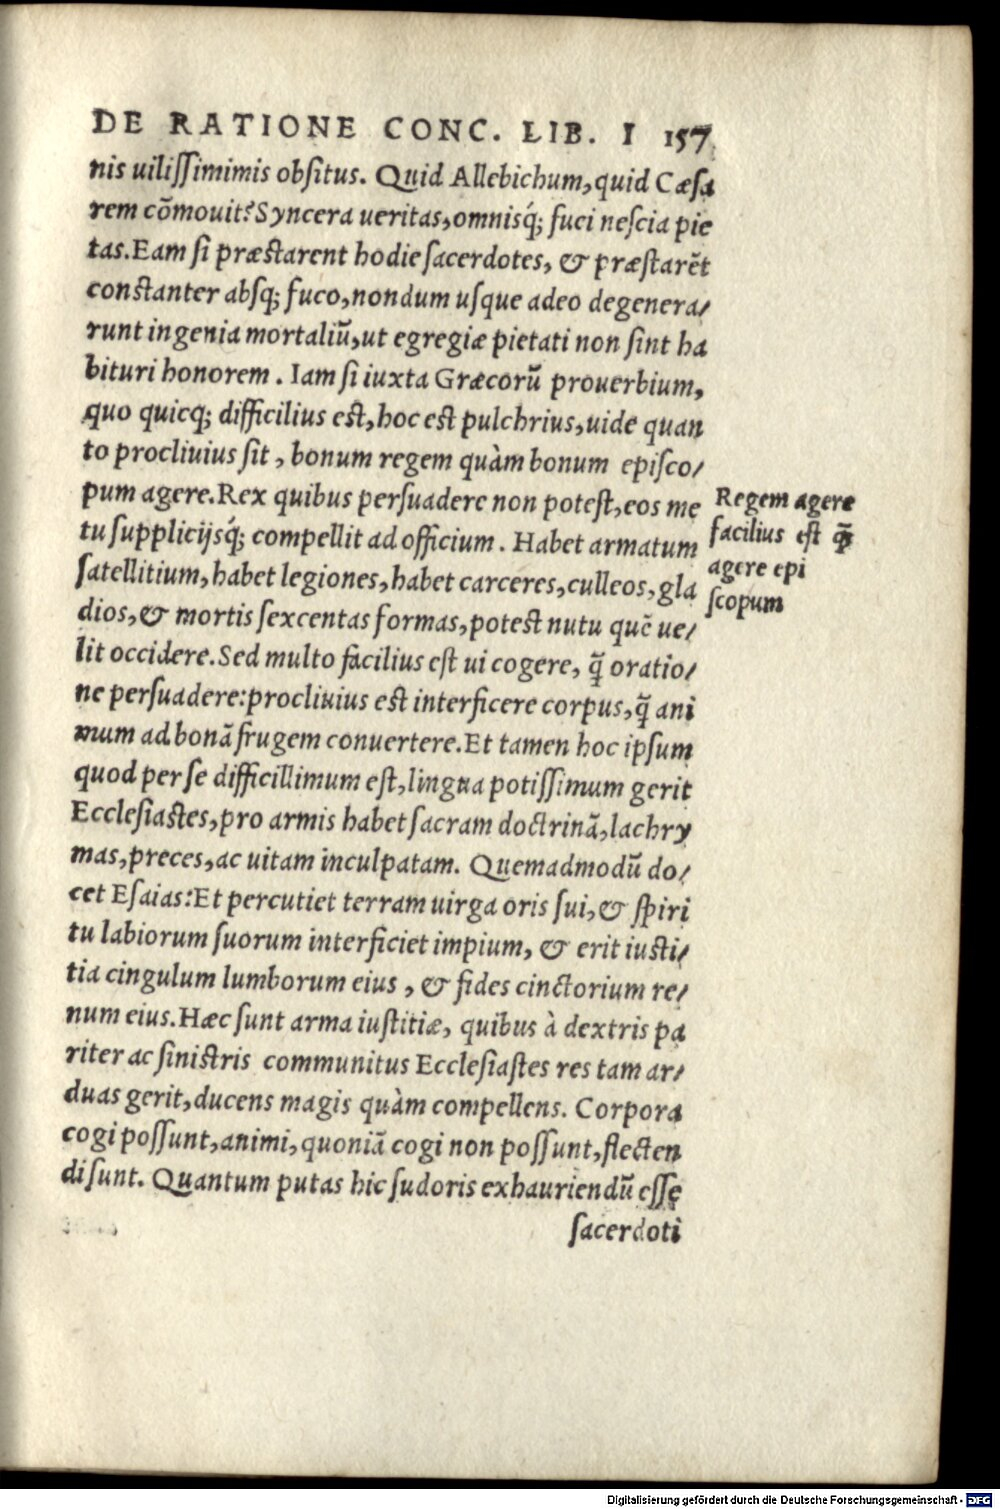 DE RATIONE CONC. LIB. I 157
nis uilissimimis obsitus. Quid Allebichum, quid Cæsa
rem cõmouit? Syncera ueritas, omnisq́; fuci nescia pie
tas. Eam si præstarent hodie sacerdotes, & præstarẽt
constanter absq; fuco, nondum usque adeo degenera/
runt ingenia mortaliũ, ut egregiæ pietati non sint ha
bituri honorem. Iam si iuxta Græcorũ prouerbium,
quo quicq; difficilius est, hoc est pulchrius, uide quan
to procliuius sit, bonum regem quàm bonum episco/
pum agere. Rex quibus persuadere non potest, eos me
tu supplicijsq́; compellit ad officium. Habet armatum
satellitium, habet legiones, habet carceres, culleos, gla
dios, & mortis sexcentas formas, potest nutu quẽ ue/
lit occidere. Sed multo facilius est ui cogere, q̃ oratio/
ne persuadere: procliuius est interficere corpus, q̃ ani
mum ad bonã frugem conuertere. Et tamen hoc ipsum
quod per se difficillimum est, lingua potissimum gerit
Ecclesiastes, pro armis habet sacram doctrinã, lachry
mas, preces, ac uitam inculpatam. Quemadmodũ do/
cet Esaias: Et percutiet terram uirga oris sui, & spiri
tu labiorum suorum interficiet impium, & erit iusti/
tia cingulum lumborum eius, & fides cinctorium re/
num eius. Hæc sunt arma iustitiæ, quibus à dextris pa
riter ac sinistris communitus Ecclesiastes res tam ar/
duas gerit, ducens magis quàm compellens. Corpora
cogi possunt, animi, quoniã cogi non possunt, flecten
di sunt. Quantum putas hic sudoris exhauriendũ esse
sacerdoti
Regem agere
facilius est q̃
agere epi
scopum
Digitalisierung gefördert durch die Deutsche Forschungsgemeinschaft - DFG